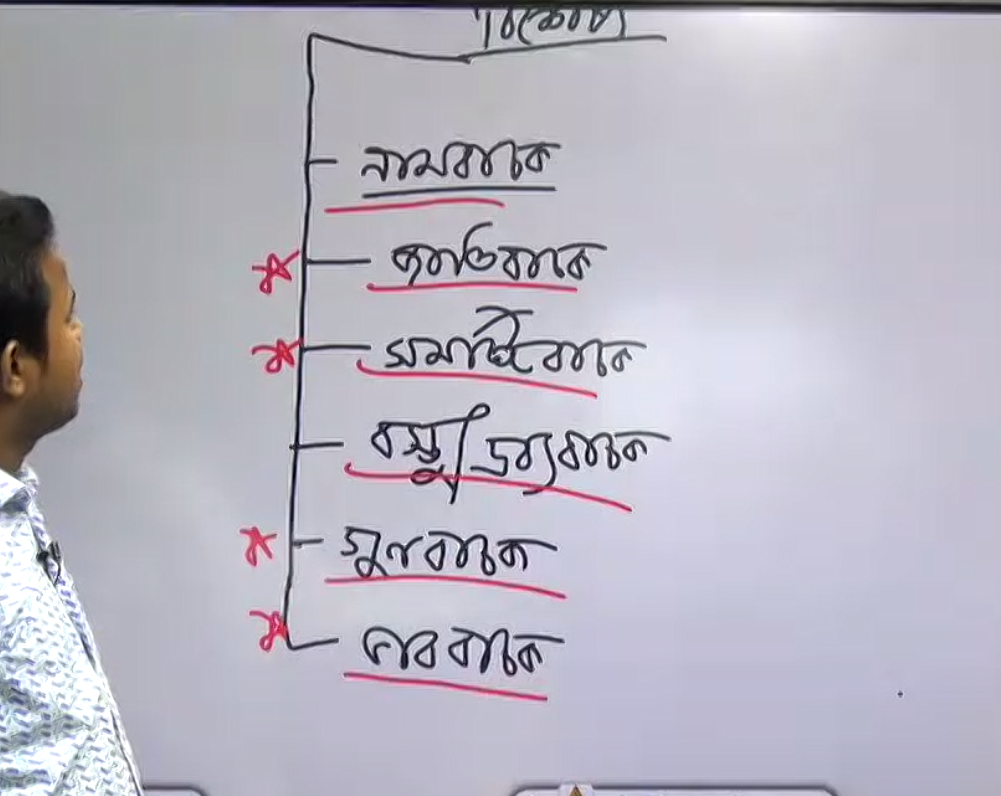 বিশেষ্য
নামবাচক
জাতিবাচক
সমষ্টিবাচক
বস্তু/দ্রব্যবাচক
গুণবাচক
ভাববাচক